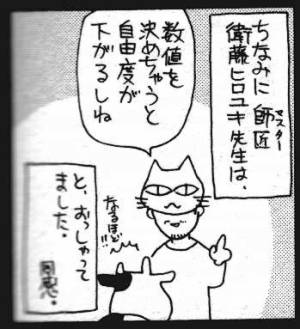 ちなみに 師匠
マスター
衛藤ヒロユキ先生は、
数値を
決めちゃうと
自由度が
下がるしね
なるほど!!
と、おっしゃって
ました。
同感。